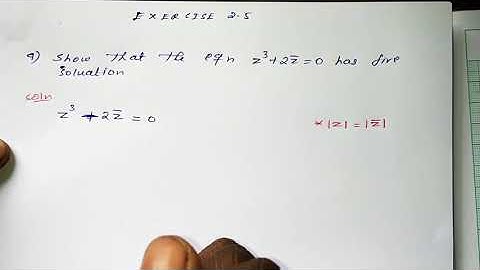 EXERCISE 2.5
9) Show that the eqn z³+2z̄=0 has five
Soluation
Soln
z³ + 2z̄ = 0
* |z| = |z̄|